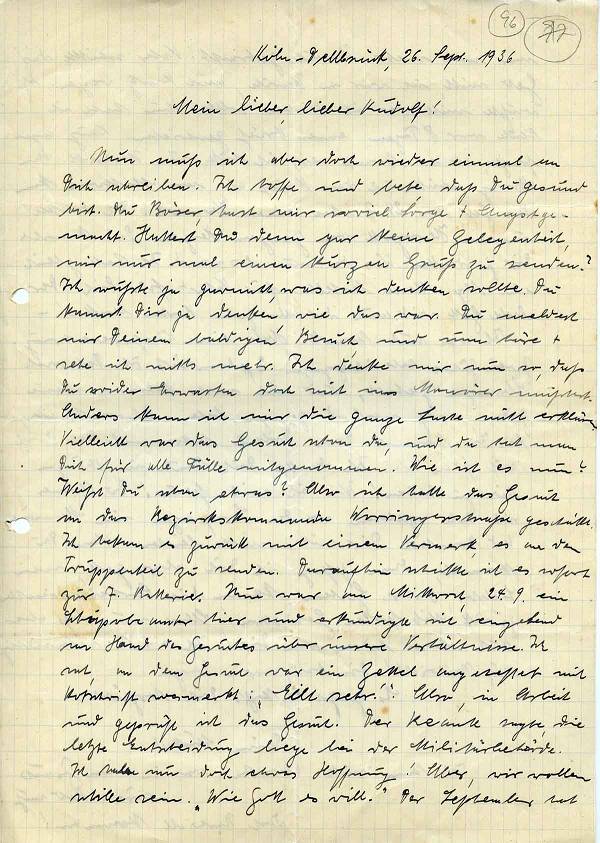 96
77
Köln-Dellbrück, 26. Sept. 1936
Mein lieber, lieber Rudolf!
Nun muß ich aber doch wieder einmal an
Dich schreiben. Ich hoffe und bete daß Du gesund
bist. Du Böser hast mir soviel Sorge + Angst ge-
macht. Hattest Du denn gar keine Gelegenheit,
mir nur mal einen kurzen Gruß zu senden?
Ich wußte ja garnicht, was ich denken sollte. Du
kannst Dir ja denken wie das war. Du meldest
mir Deinen baldigen Besuch, und nun höre +
sehe ich nichts mehr. Ich denke mir nun so, daß
Du wider Erwarten doch mit ins Manöver mußtest.
Anders kann ich mir die ganze Sache nicht erklären.
Vielleicht war das Gesuch schon da, und da hat man
Dich für alle Fälle mitgenommen. Wie ist es nun?
Weißt Du schon etwas? Also ich hatte das Gesuch
an das Bezirkskommando Worringerstraße geschickt.
Ich bekam es zurück mit einem Vermerk, es an den
Truppenteil zu senden. Daraufhin schickte ich es sofort
zur 7. Batterie. Nun war am Mittwoch, 24.9. ein
hier und erkundigte sich eingehend
an Hand des Gesuches über unsere Verhältnisse. Ich
sah, an dem Gesuch war ein Zettel angeheftet mit
Rotschrift vermerkt: „Eilt sehr!" Also, in Arbeit
und geprüft ist das Gesuch. Der Beamte sagte, die
letzte Entscheidung liege bei der Militärbehörde.
Ich habe nun doch etwas Hoffnung! Aber, wir wollen
stille sein. „Wie Gott es will." Der September hat